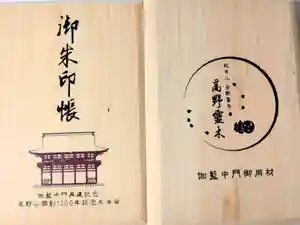 御朱印帳
伽藍中門再建記念
高野山開創1200年記念大法会
高野山 金剛峯寺
高野霊木
伽藍中門御用材